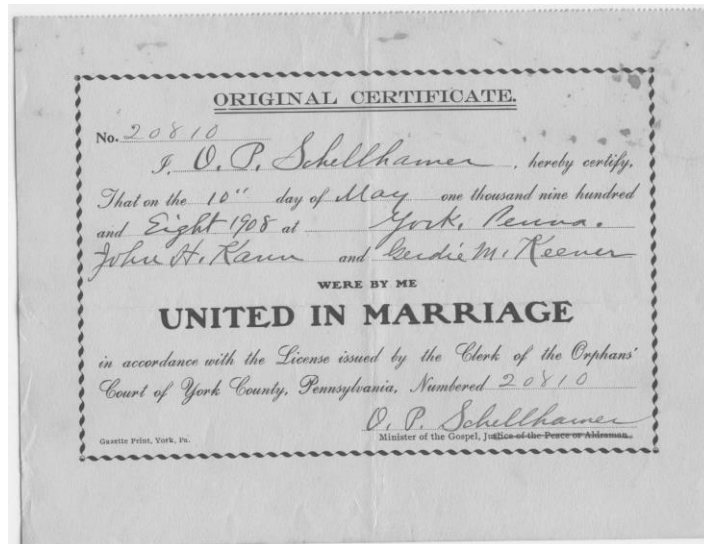 ORIGINAL CERTIFICATE.
No. 20810
I, O. P. Schellhamer, hereby certify,
That on the 10" day of May one thousand nine hundred
and Eight 1908 at York, Penna.
John H. Kann and Gerdie M. Keener
WERE BY ME
UNITED IN MARRIAGE
in accordance with the License issued by the Clerk of the Orphans'
Court of York County, Pennsylvania, Numbered 20810
O. P. Schellhamer
Gazette Print, York, Pa. Minister of the Gospel, Justice of the Peace or Alderman.